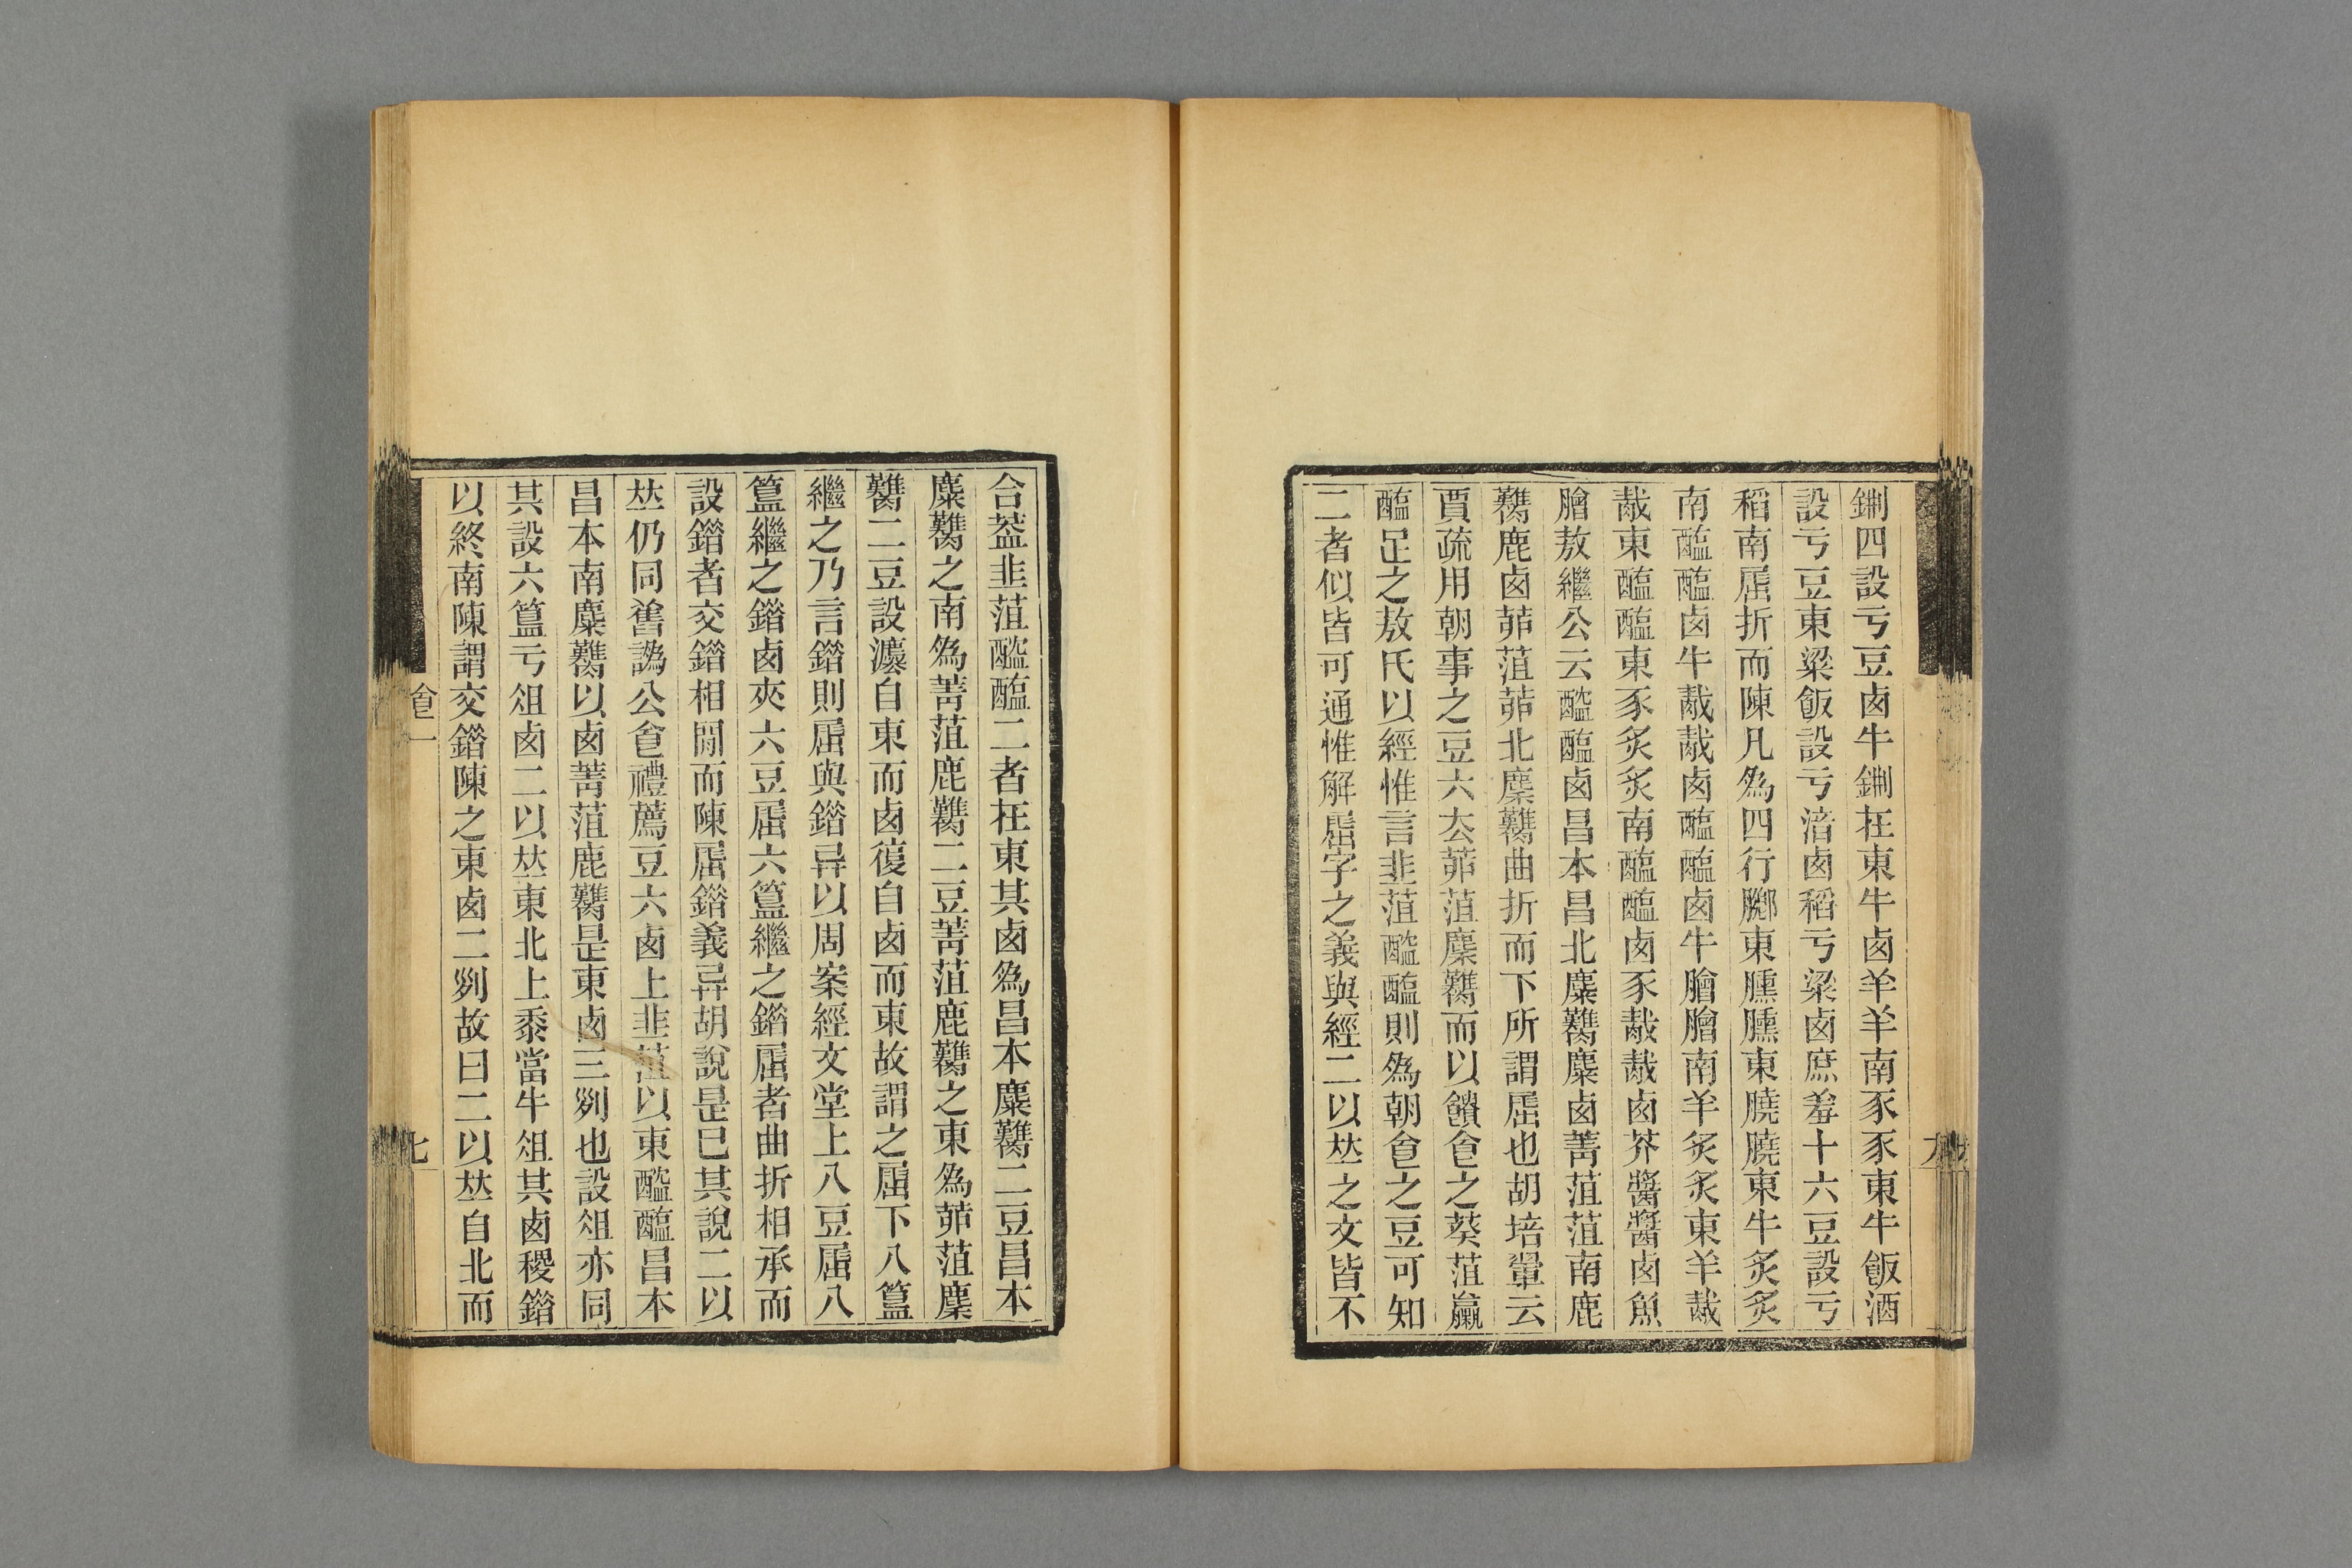 鉶四設亏豆卥牛鉶扗東牛卥羊羊南豕豕東牛飯酒
設亏豆東粱飯設亏湆卥稻亏粱卥庶羞十六豆設亏
稻南屈折而陳凡爲四行膷東臐臐東膮膮東牛炙炙
南醢醢卥牛胾胾卥醢醢卥牛膾膾南羊炙炙東羊胾
胾東醢醢東豕炙炙南醢醢卥豕胾胾卥芥醬醬卥魚
膾敖繼公云醓醢卥昌本昌北麋臡麋卥菁菹菹南鹿
臡鹿卥茆菹茆北麇臡曲折而下所謂屈也胡培翬云
賈疏用朝事之豆六去茆菹麇臡而以饋食之葵菹蠃
醢足之敖氏以經惟言韭菹醓醢則爲朝食之豆可知
二者似皆可通惟解屈字之義與經二以竝之文皆不
合葢韭菹醓醢二者扗東其卥爲昌本麋臡二豆昌本
麋臡之南爲菁菹鹿臡二豆菁菹鹿臡之東爲茆菹麇
臡二豆設灋自東而卥復自卥而東故謂之屈下八簋
繼之乃言錯則屈與錯異以周案經文堂上八豆屈八
簋繼之錯卥夾六豆屈六簋繼之錯屈者曲折相承而
設錯者交錯相閒而陳屈錯義異胡說是已其說二以
竝仍同舊譌公食禮薦豆六卥上韭菹以東醓醢昌本
昌本南麋臡以卥菁菹鹿臡是東卥三列也設俎亦同
其設六簋亏俎卥二以竝東北上黍當牛俎其卥稷錯
以終南陳謂交錯陳之東卥二列故曰二以竝自北而
食一
七